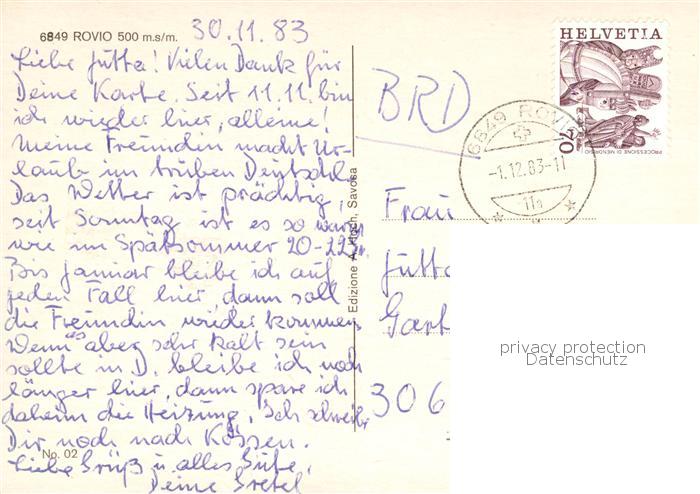 6849 ROVIO 500 m.s/m.
30.11.83
Liebe Jutta! Vielen Dank für
Deine Karte. Seit 11.11. bin
ich wieder hier, alleine!
Meine Freundin macht Ur-
laub im trüben Deutschl.
Das Wetter ist prächtig,
seit Sonntag ist es so warm
wie im Spätsommer 20-22°.
Bis Januar bleibe ich auf
jeden Fall hier, dann soll
die Freundin wieder kommen.
Wenn es aber sehr kalt sein
sollte in D. bleibe ich noch
länger hier, dann spare ich
daheim die Heizung. Ich schreibe
Dir noch nach Kössen.
No. 02
Liebe Grüß u. alles Gute,
Deine Gretel
Edizione A. Hoch, Savosa
BRD
HELVETIA
70
PROCESSIONE DI MENDRISIO
6849 ROVIO
-1.12.83-11
11a
Frau
Jutta
Gart
306
privacy protection
Datenschutz